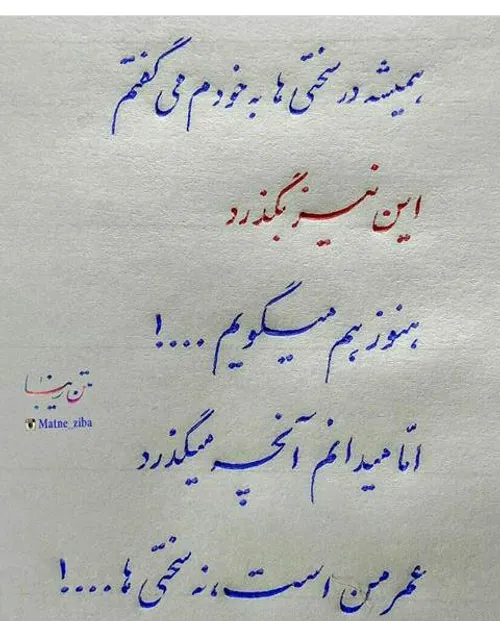 همیشه در سختی ها به خودم می گفتم
این نیز بگذرد
هنوز هم میگویم ....!
متن زیبا
Matne_ziba
امّا میدانم آنچه میگذرد
عمر من است، نه سختی ها....!